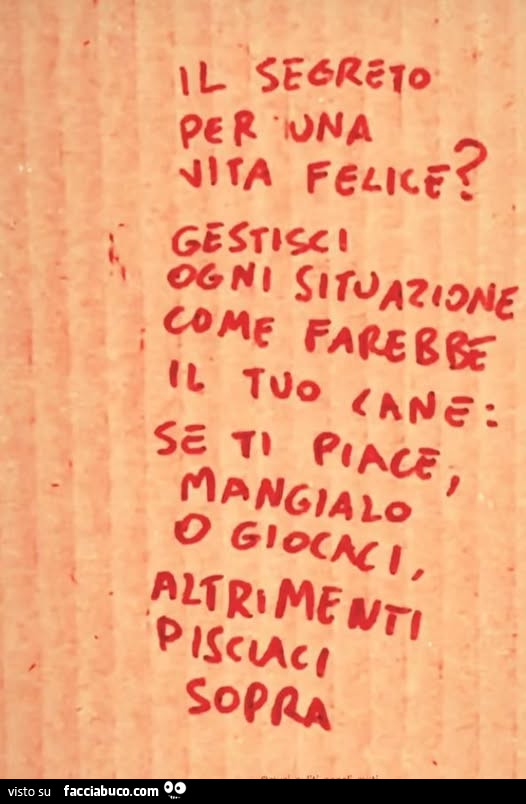 IL SEGRETO
PER UNA
VITA FELICE?
GESTISCI
OGNI SITUAZIONE
COME FAREBBE
IL TUO CANE:
SE TI PIACE,
MANGIALO
O GIOCACI,
ALTRIMENTI
PISCIACI
SOPRA
visto su facciabuco.com